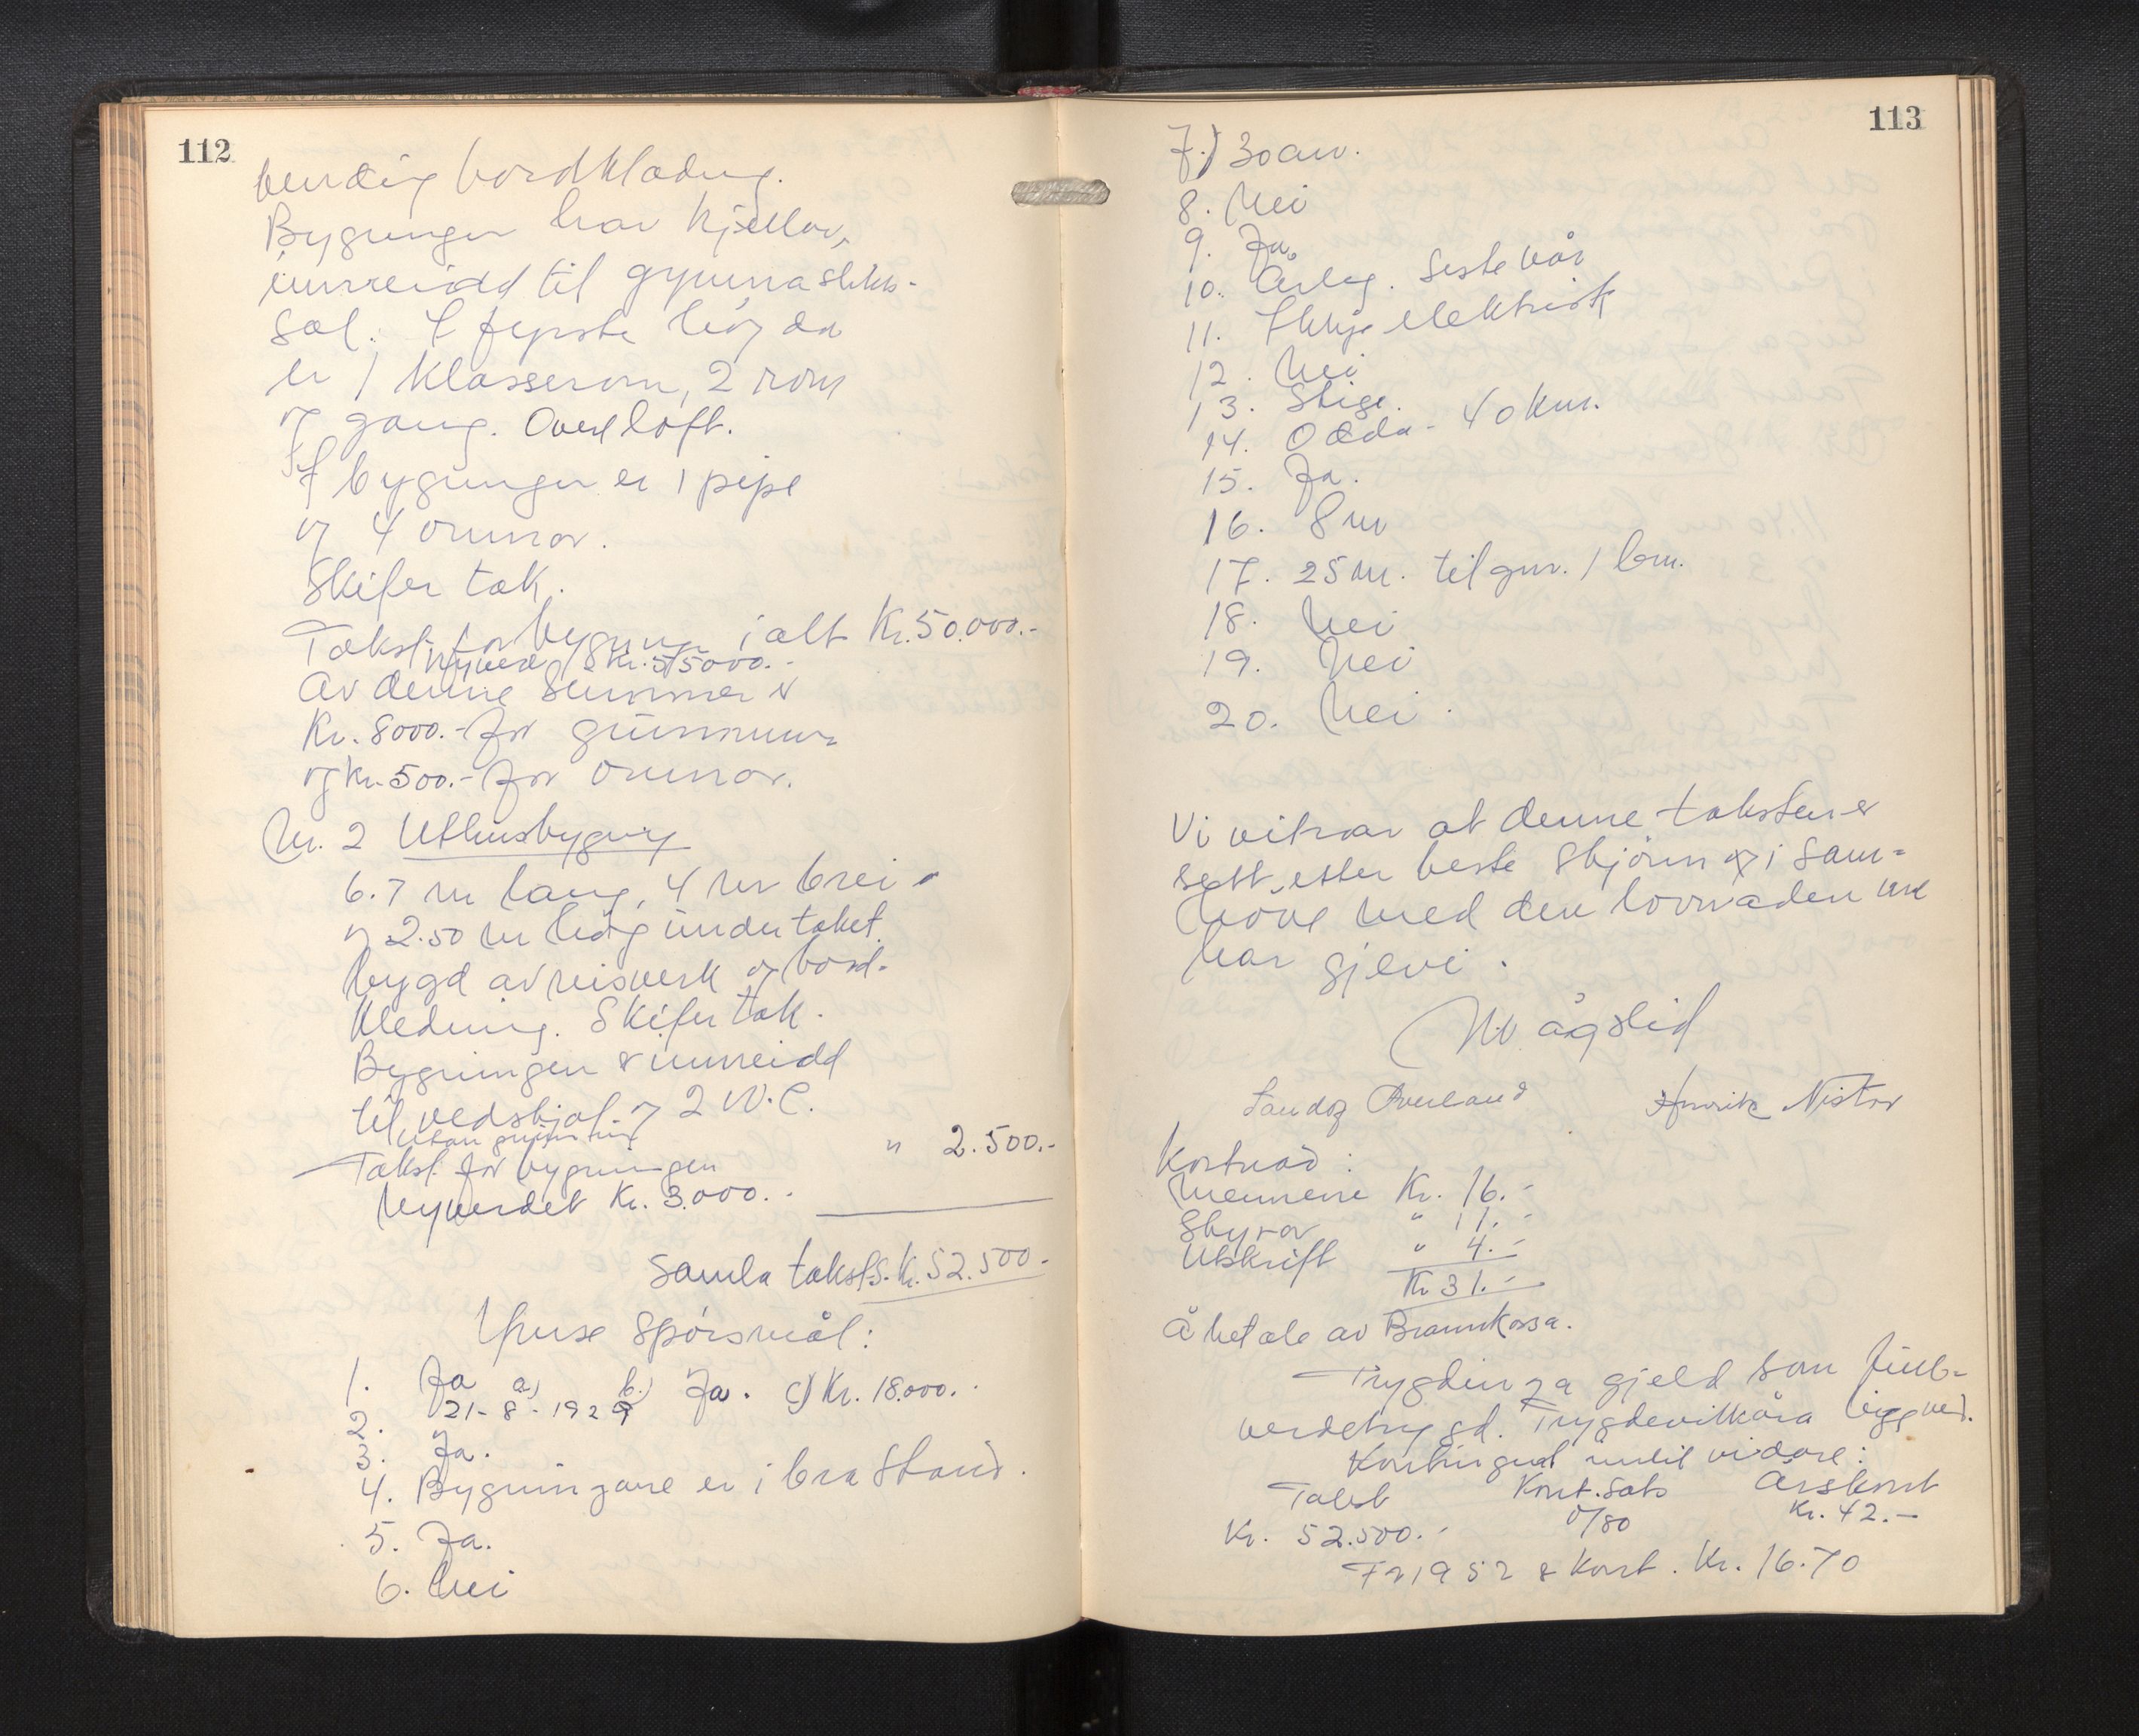 112
vendig bordklædng.
Bygningen har kjellar,
innreidd til gymnastikk-
sal. I fyrste högda
er 1 klasserom, 2 rom
og gang. Over loft.
I bygningen er 1 pipe
og 4 omnar.
Skifer tak.
Takst for bygningen ialt Kr. 50.000.-
Nyverdi Kr. 55000.-
Av denne summen er
Kr. 8000.- for grunnmur
og Kr. 500.- for omnar.
Nr. 2 Uthusbygning
6.7 m lang, 4 m brei
og 2.50 m høg under taket
bygd av reisverk og bord-
kledning. Skifertak.
Bygningen er innreidd
til vedskjol og 2 W.C.
utan grunnmur
Takst for bygningen " 2.500.-
Nyverdet Kr. 3.000.-
Samla takst S. Kr. 52.500.-
Ymse spörsmål:
1. Ja a) b) Ja. c) Kr. 18.000.-
2. 21-8-1929
3. Ja.
4. Bygningane er i bra stand.
5. Ja.
6. Nei
113
7.) 30 cm.
8. Nei
9. Ja.
10. Årleg. Siste vår
11. Ikkje elektrisk
12. Nei
13. Stige.
14. Odda - 40 km.
15. Ja.
16. 8 m
17. 25 m. til gnr. 1 bnr.
18. Nei
19. Nei
20. Nei.
Vi vitnar at denne taksten er
sett etter beste skjönn og i sam-
hove med den lovnaden me
har gjevi.
M Ågslid
Overland Henrik Nistov
Kostnad:
Mennene Kr. 16.-
Styrar " 11.-
Utskrift " 4.-
Kr 31.-
Å betale av Brannkassa.
Trygdinga gjeld som fullt-
verdetrygd. Trygdevilkåra ligg ved.
Kontingent inntil vidare:
Takst Kont. sats Årskont
Kr. 52.500.- 0/80 Kr. 42.-
For 1952 er kont. Kr. 16.70